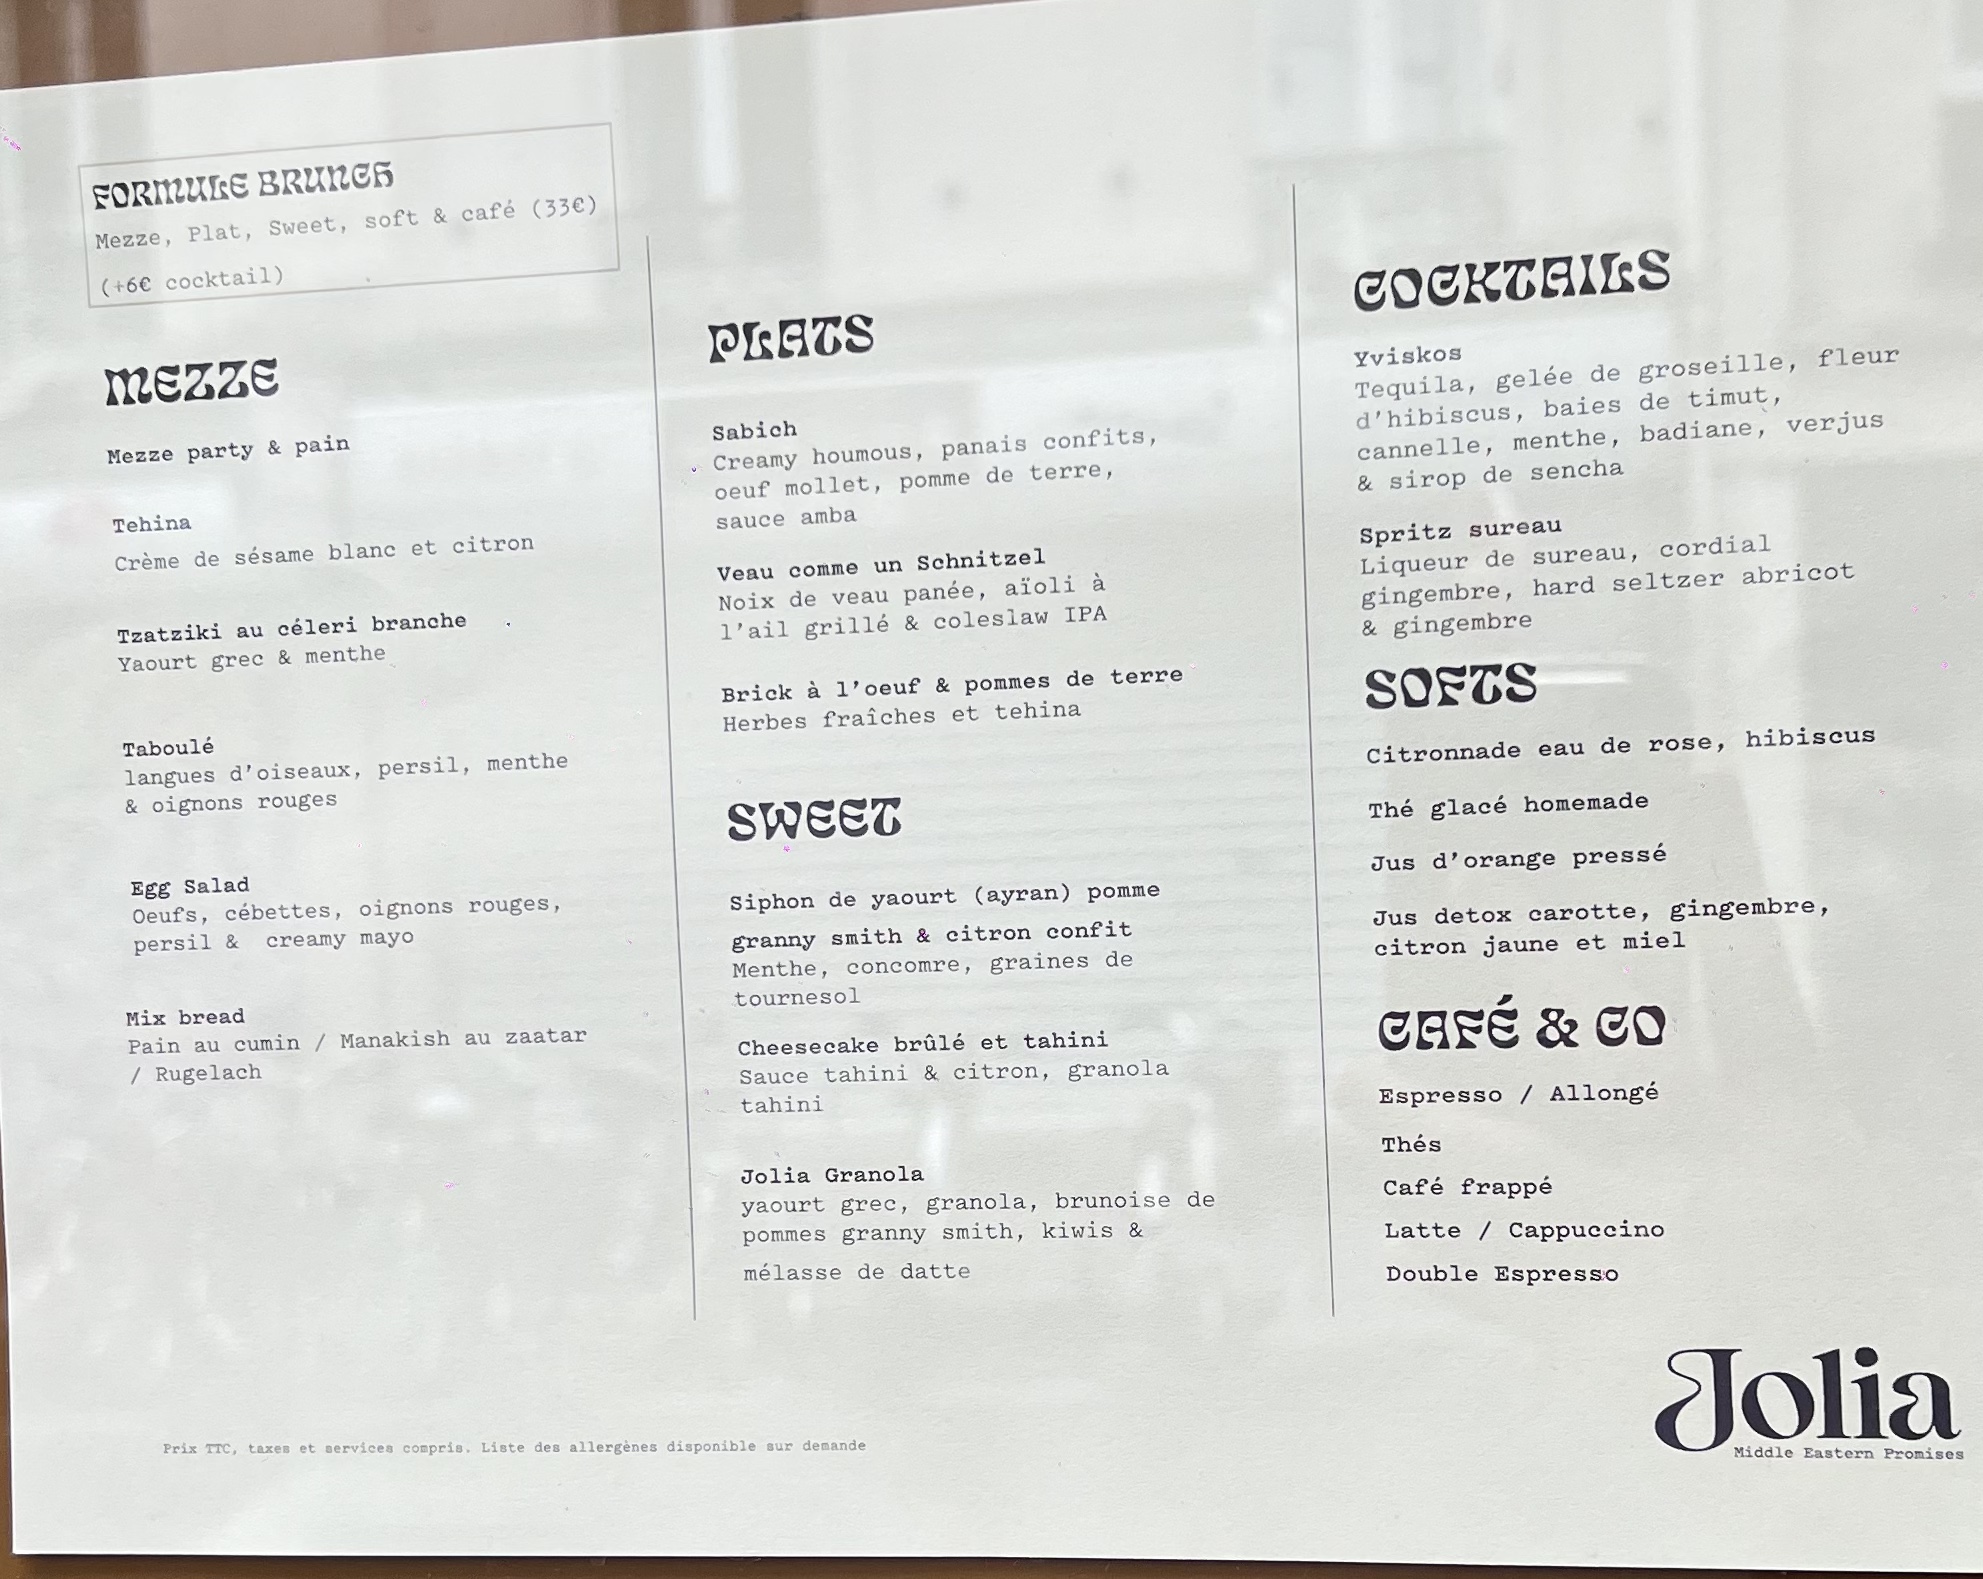 FORMULE BRUNCH
Mezze, Plat, Sweet, soft & café (33€)
(+6€ cocktail)
MEZZE
Mezze party & pain
Tehina
Crème de sésame blanc et citron
Tzatziki au céleri branche
Yaourt grec & menthe
Taboulé
langues d'oiseaux, persil, menthe
& oignons rouges
Egg Salad
Oeufs, cébettes, oignons rouges,
persil & creamy mayo
Mix bread
Pain au cumin / Manakish au zaatar
/ Rugelach
PLATS
Sabich
Creamy houmous, panais confits,
oeuf mollet, pomme de terre,
sauce amba
Veau comme un Schnitzel
Noix de veau panée, aïoli à
l'ail grillé & coleslaw IPA
Brick à l'oeuf & pommes de terre
Herbes fraîches et tehina
SWEET
Siphon de yaourt (ayran) pomme
granny smith & citron confit
Menthe, concomre, graines de
tournesol
Cheesecake brûlé et tahini
Sauce tahini & citron, granola
tahini
Jolia Granola
yaourt grec, granola, brunoise de
pommes granny smith, kiwis &
mélasse de datte
COCKTAILS
Yviskos
Tequila, gelée de groseille, fleur
d'hibiscus, baies de timut,
cannelle, menthe, badiane, verjus
& sirop de sencha
Spritz sureau
Liqueur de sureau, cordial
gingembre, hard seltzer abricot
& gingembre
SOFTS
Citronnade eau de rose, hibiscus
Thé glacé homemade
Jus d'orange pressé
Jus detox carotte, gingembre,
citron jaune et miel
CAFÉ & CO
Espresso / Allongé
Thés
Café frappé
Latte / Cappuccino
Double Espresso
Jolia
Middle Eastern Promises
Prix TTC, taxes et services compris. Liste des allergènes disponible sur demande